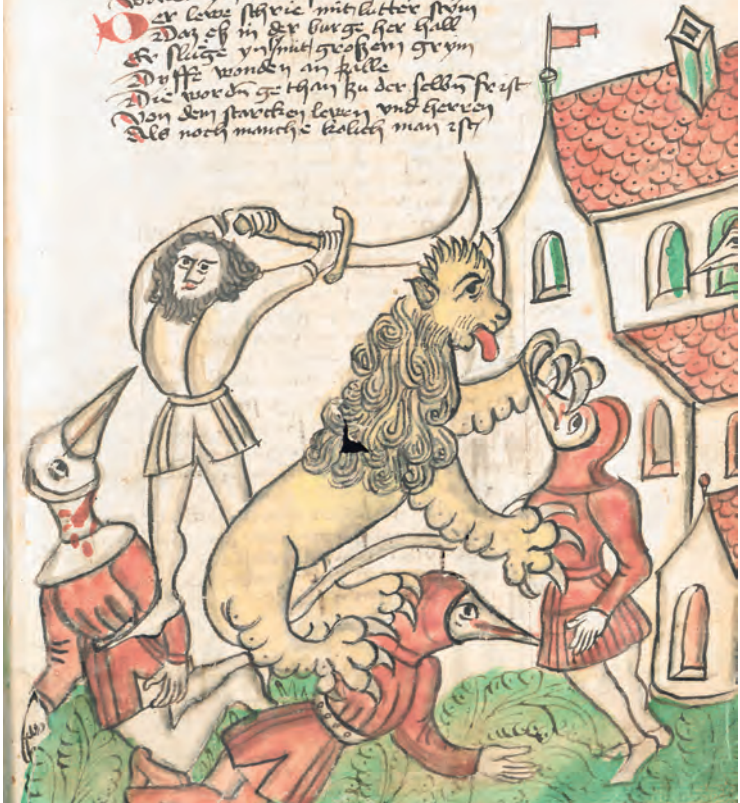 Der lewe schrie mit lutter stym
Daz eß in der burge her hall
Er sluge yn mit großem grym
Dyffe wonden an zalle
Die wordn̄ gethan zu der selbn̄ frist
Von dem starcken lewen und herren
Als noch manche kolich man ist